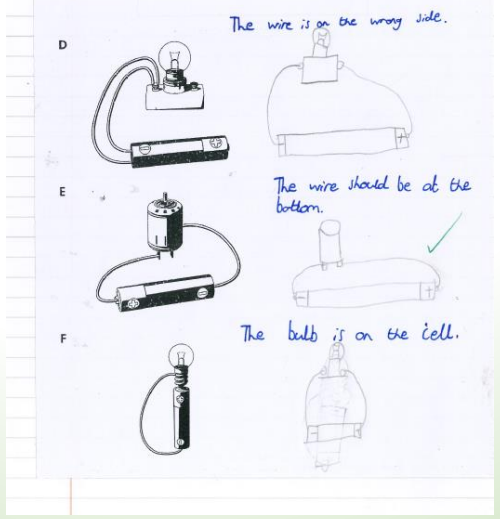 The wire is on the wrong side.
D
The wire should be at the
E
bottom.
The bulb is on the cell.
F